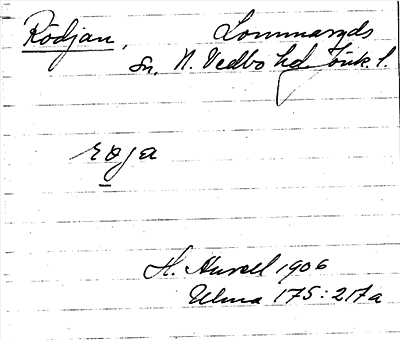 Rödjan, Lommaryds
sn. N. Vedbo hd Jönk. l.
röja
H. Aurell 1906
Ulma 175:217a